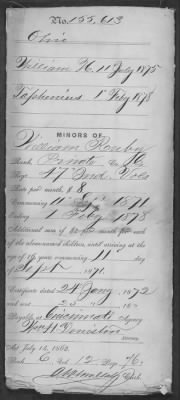 No. 155,613
Ohio
William H. 11 July 1875
1" Feby 1878
MINORS OF
William
Rank Private Co. K
Regt 47" Ind. Vols
Rate per month, $ 8
Commencing 11" 1871
Ending 1 Feby 1878
Additional sum of $2 per month for each
of the above-named children, until arriving at the
age of 16 years, commencing 11 day
of Sept 1871.
Certificate dated 24 Jany 1872
and sent 25 " 187
Payable at Cincinnati Agency
Wm H. Deniston
ATTORNEY.
Act July 14, 1862.
Book C Vol. 12 Page 76
Clerk.